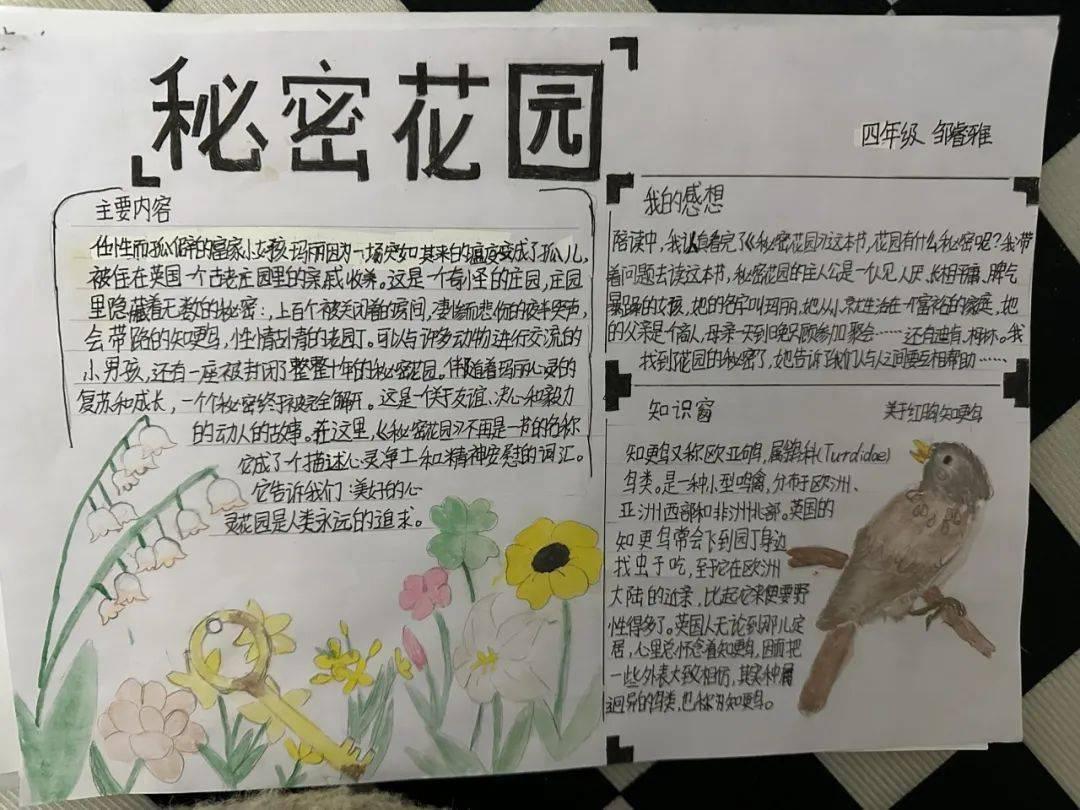 秘密花园
四年级 邹睿雅
主要内容
任性而孤僻的富家小女孩玛丽因为一场突如其来的瘟疫变成了孤儿,
被住在英国一个古老庄园里的亲戚收养。这是一个奇怪的庄园,庄园
里隐藏着无数的秘密:,上百个被关闭着的房间,凄惨而悲伤的夜半哭声,
会带路的知更鸟,性情古怪的老园丁。可以与许多动物进行交流的
小男孩,还有一座被封闭了整整十年的秘密花园。伴随着玛丽心灵的
复苏和成长,一个个秘密终于被完全解开。这是一个关于友谊、决心和毅力
的动人的故事。在这里,《秘密花园》不再是一书的名称
它成了个描述心灵净土和精神安慰的词汇。
它告诉我们:美好的心
灵花园是人类永远的追求。
我的感想
陪读中,我认真看完了《秘密花园》这本书,花园有什么秘密呢?我带
着问题去读这本书,秘密花园的主人公是一个人见人厌,长相平庸、脾气
暴躁的女孩,她的名字叫玛丽,她从小就生活在一个富裕的家庭,她
的父亲是个商人,母亲一天到晚只顾参加聚会……还有迪肯、柯林。我
找到花园的秘密了,她告诉我们人与人之间要互相帮助……
知识窗
关于红胸知更鸟
知更鸟又称欧亚鸲,属鸫科(Turdidae)
鸟类。是一种小型鸣禽,分布于欧洲、
亚洲西部和非洲北部。英国的
知更鸟常会飞到园丁身边
找虫子吃,至于它在欧洲
大陆的近亲,比起它来便要野
性得多了。英国人无论到那儿定
居,心里总怀念着知更鸟,因而把
一些外表大致相仿,其实种属
迥异的鸟类,也称为知更鸟。